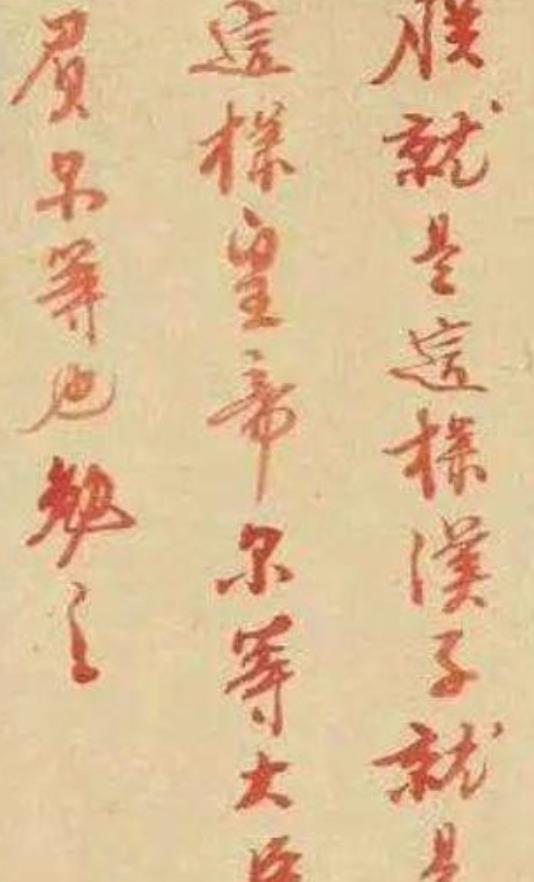 朕就是這樣漢子就是
這樣皇帝尔等大臣
負尔等也勉之